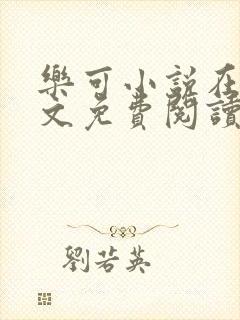 樂可小說在
文免費閱讀
劉若英